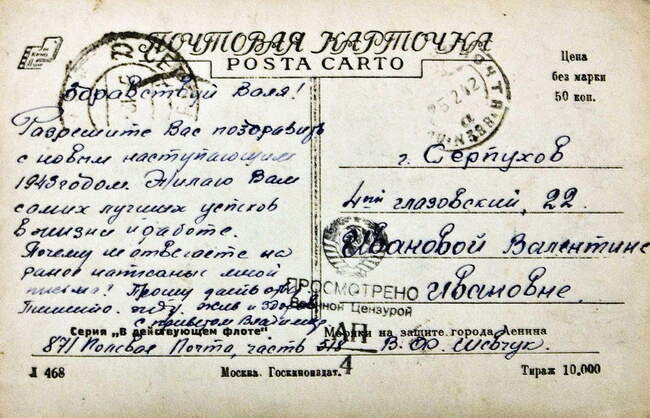 ПОЧТОВАЯ КАРТОЧКА
POSTA CARTO
Цена
без марки
50 коп.
Здравствуй Валя!
Разрешите Вас поздравить
с новым наступающим
1943 годом. Жилаю Вам
самих лучших успехов
в жизни и работе.
Почему не отвечаете на
ранее написаные мной
письма! Прошу дать ответ
Пишите. жду. Жив и здоров
с приветом Владимир
г. Серпухов
глазовский, 22.
Ивановой Валентине
Ивановне.
ПРОСМОТРЕНО
Военной Цензурой
4
Серия „В действующем флоте“
Моряки на защите города Ленина
871 Полевая Почта, часть
В. Ф. Шевчук.
Л 468
Москва. Госкиноиздат.
Тираж 10.000